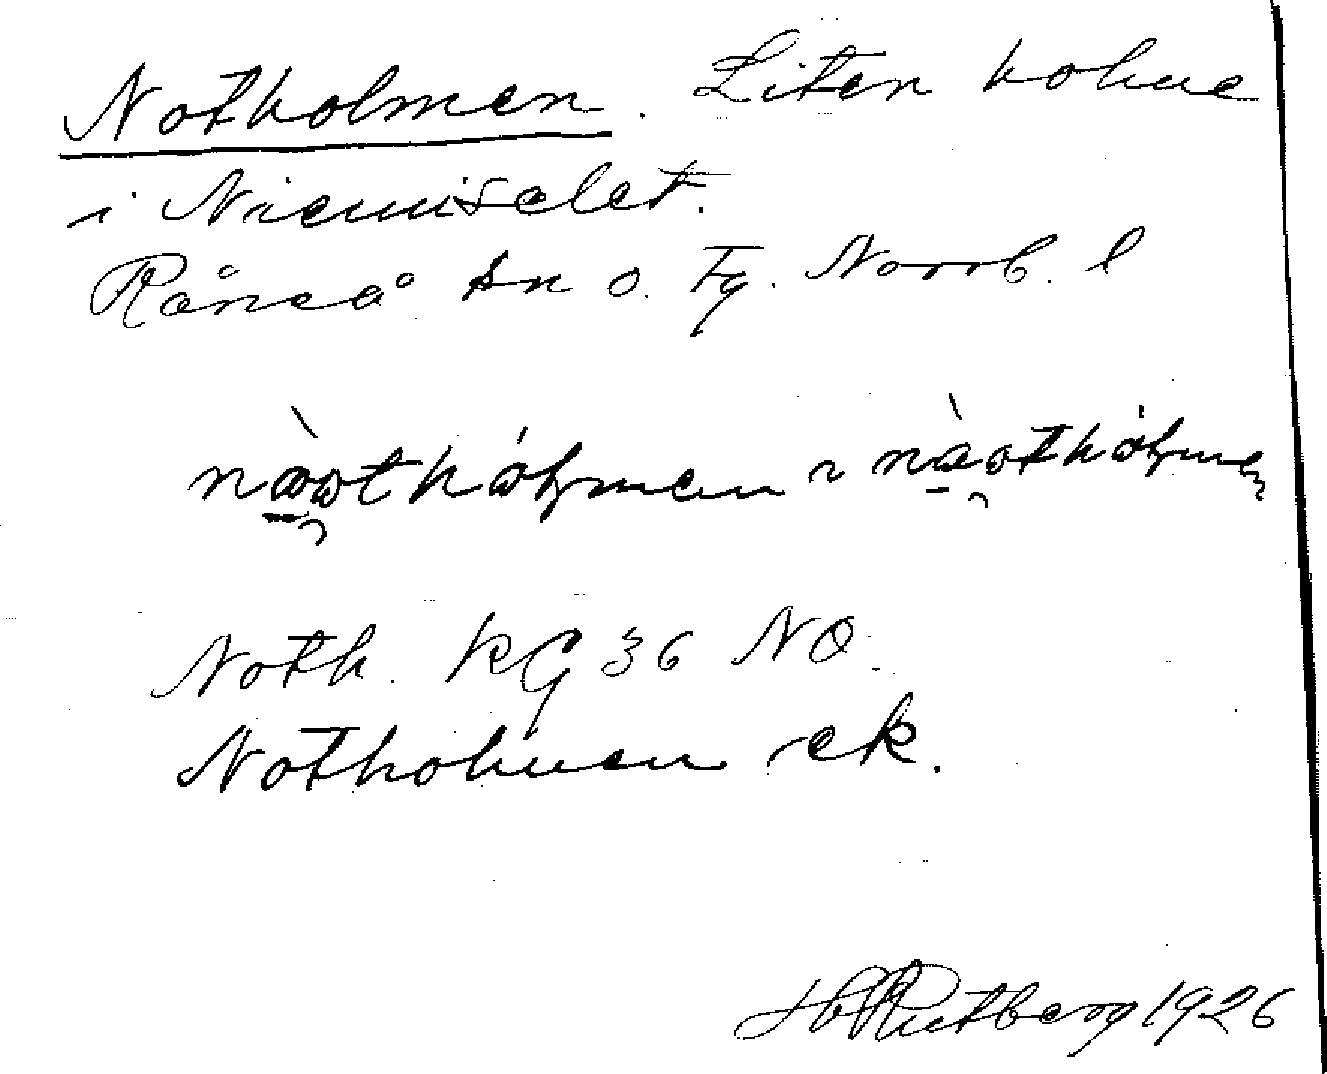 Notholmen. Liten holme
i Niemiselet.
Råneå sn o. Tg. Norrb. l
nòothólmen ~ nòothólmen
Noth. KG 36 NO.
Notholmen ek.
H Rutberg 1926